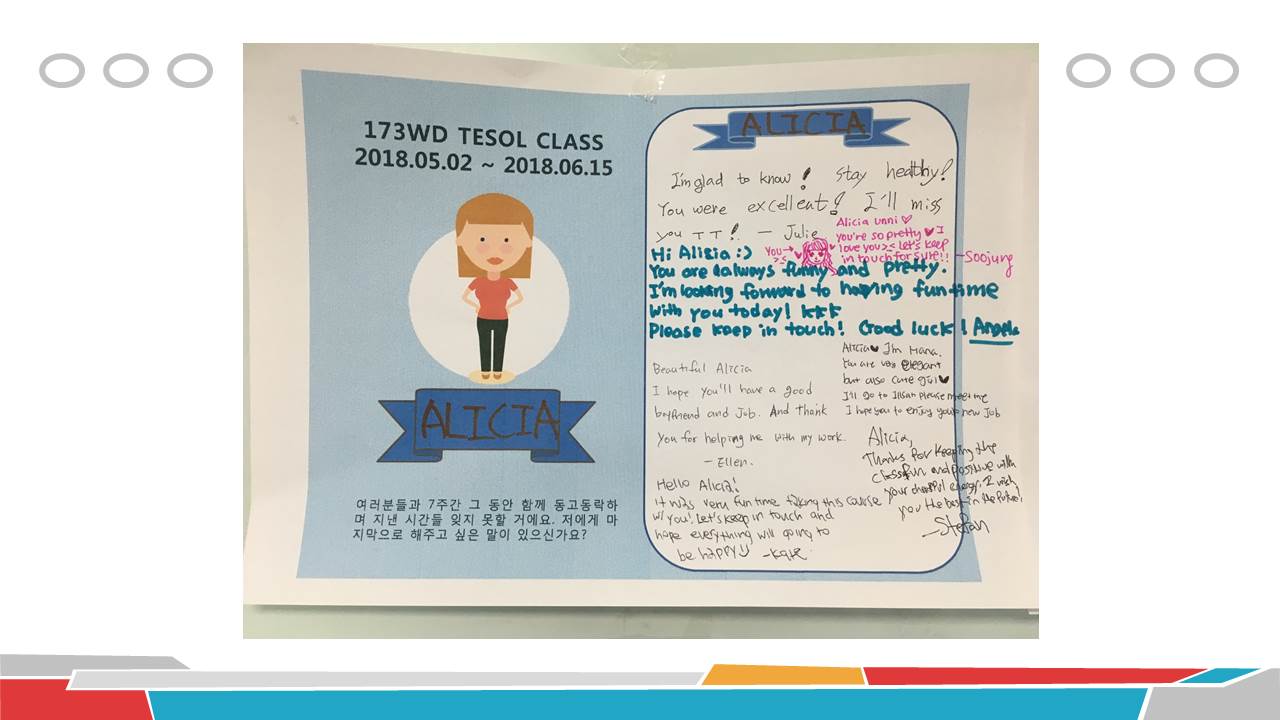 173WD TESOL CLASS
2018.05.02 ~ 2018.06.15
ALICIA
여러분들과 7주간 그 동안 함께 동고동락하
며 지낸 시간들 잊지 못할 거에요. 저에게 마
지막으로 해주고 싶은 말이 있으신가요?
ALICIA
I'm glad to know! Stay healthy!
You were excelleat! I'll miss
you ㅜㅜ! - Julie
Alicia unni ♡
you're so pretty ♥ I
love you >< Let's keep
in touch for sure!! -Soojung
You→
><
Hi Alisia :)
You are always funny and pretty.
I'm looking forward to having fun time
with you today! ㅋㅋㅋ
Please keep in touch! Good luck! Angela
Beautiful Alicia
I hope you'll have a good
boyfriend and Job. And thank
You for helping me with my work.
- Ellen.
Alicia♥ I'm Hana.
You are very elegant
but also cute girl♥
I'll go to Ilsan please meet me
I hope you to enjoy your new Job
Hello Alicia!
it was very fun time taking this course
w/ you. Let's keep in touch and
hope everything will going to
be happy!!
Alicia,
Thanks for keeping the
class fun and positive with
your cheerful energy. I wish
you the best in the future!
-Stefan